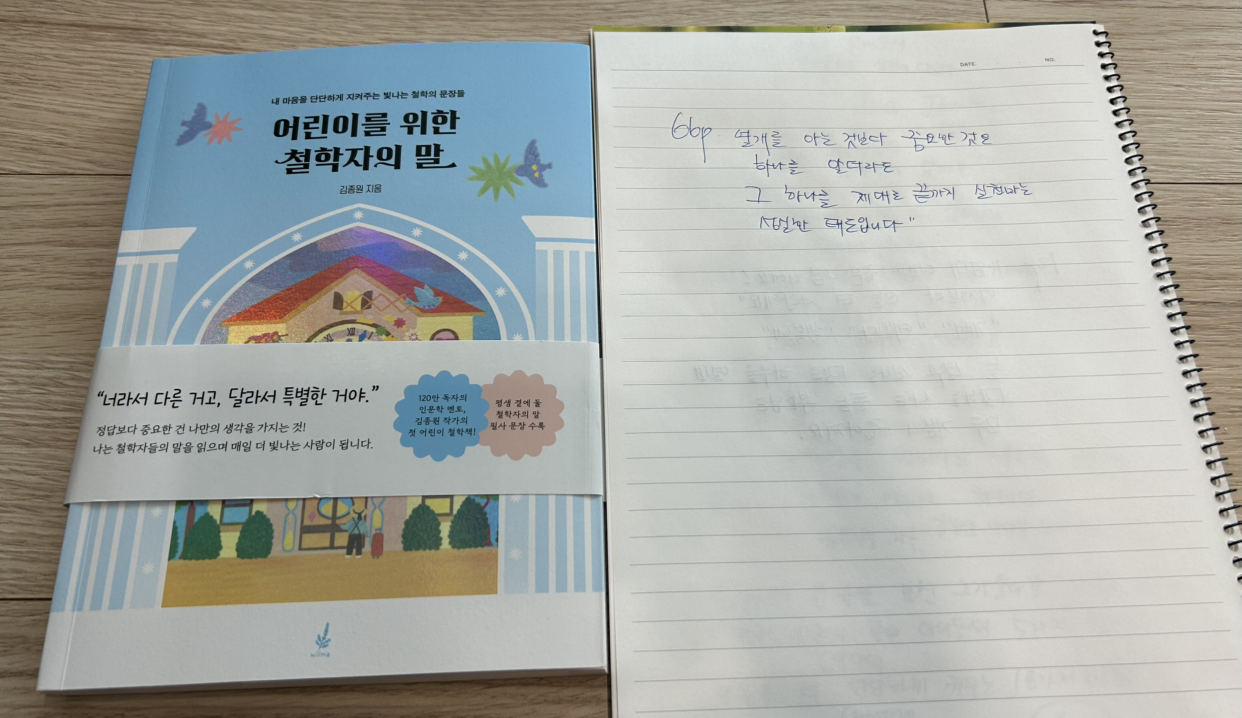 내 마음을 단단하게 지켜주는 빛나는 철학의 문장들
어린이를 위한
철학자의 말
김종원 지음
“너라서 다른 거고, 달라서 특별한 거야.”
정답보다 중요한 건 나만의 생각을 가지는 것!
나는 철학자들의 말을 읽으며 매일 더 빛나는 사람이 됩니다.
120만 독자의
인문학 멘토,
김종원 작가의
첫 어린이 철학책!
평생 곁에 둘
철학자의 말
필사 문장 수록
DATE.
NO.
66p. 열개를 아는 것보다 중요한 것은
하나를 알더라도
그 하나를 제대로 끝까지 실천하는
특별한 태도입니다"